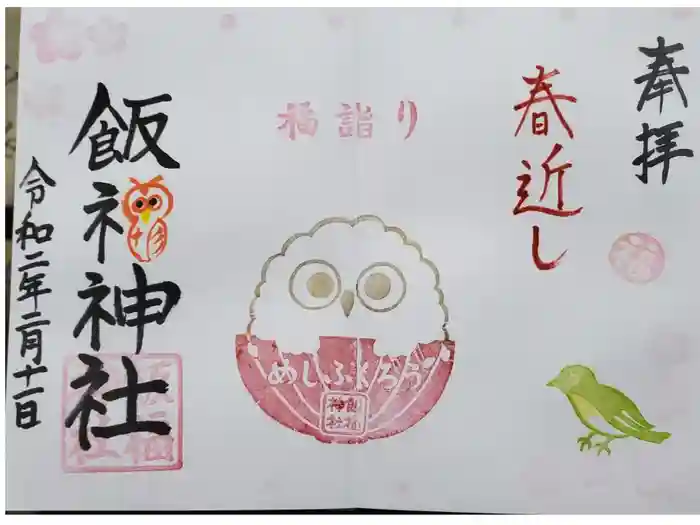 奉拝
春近し
福詣り
めしふくろう
飯福
神社
飯福神社
令和二年二月十一日